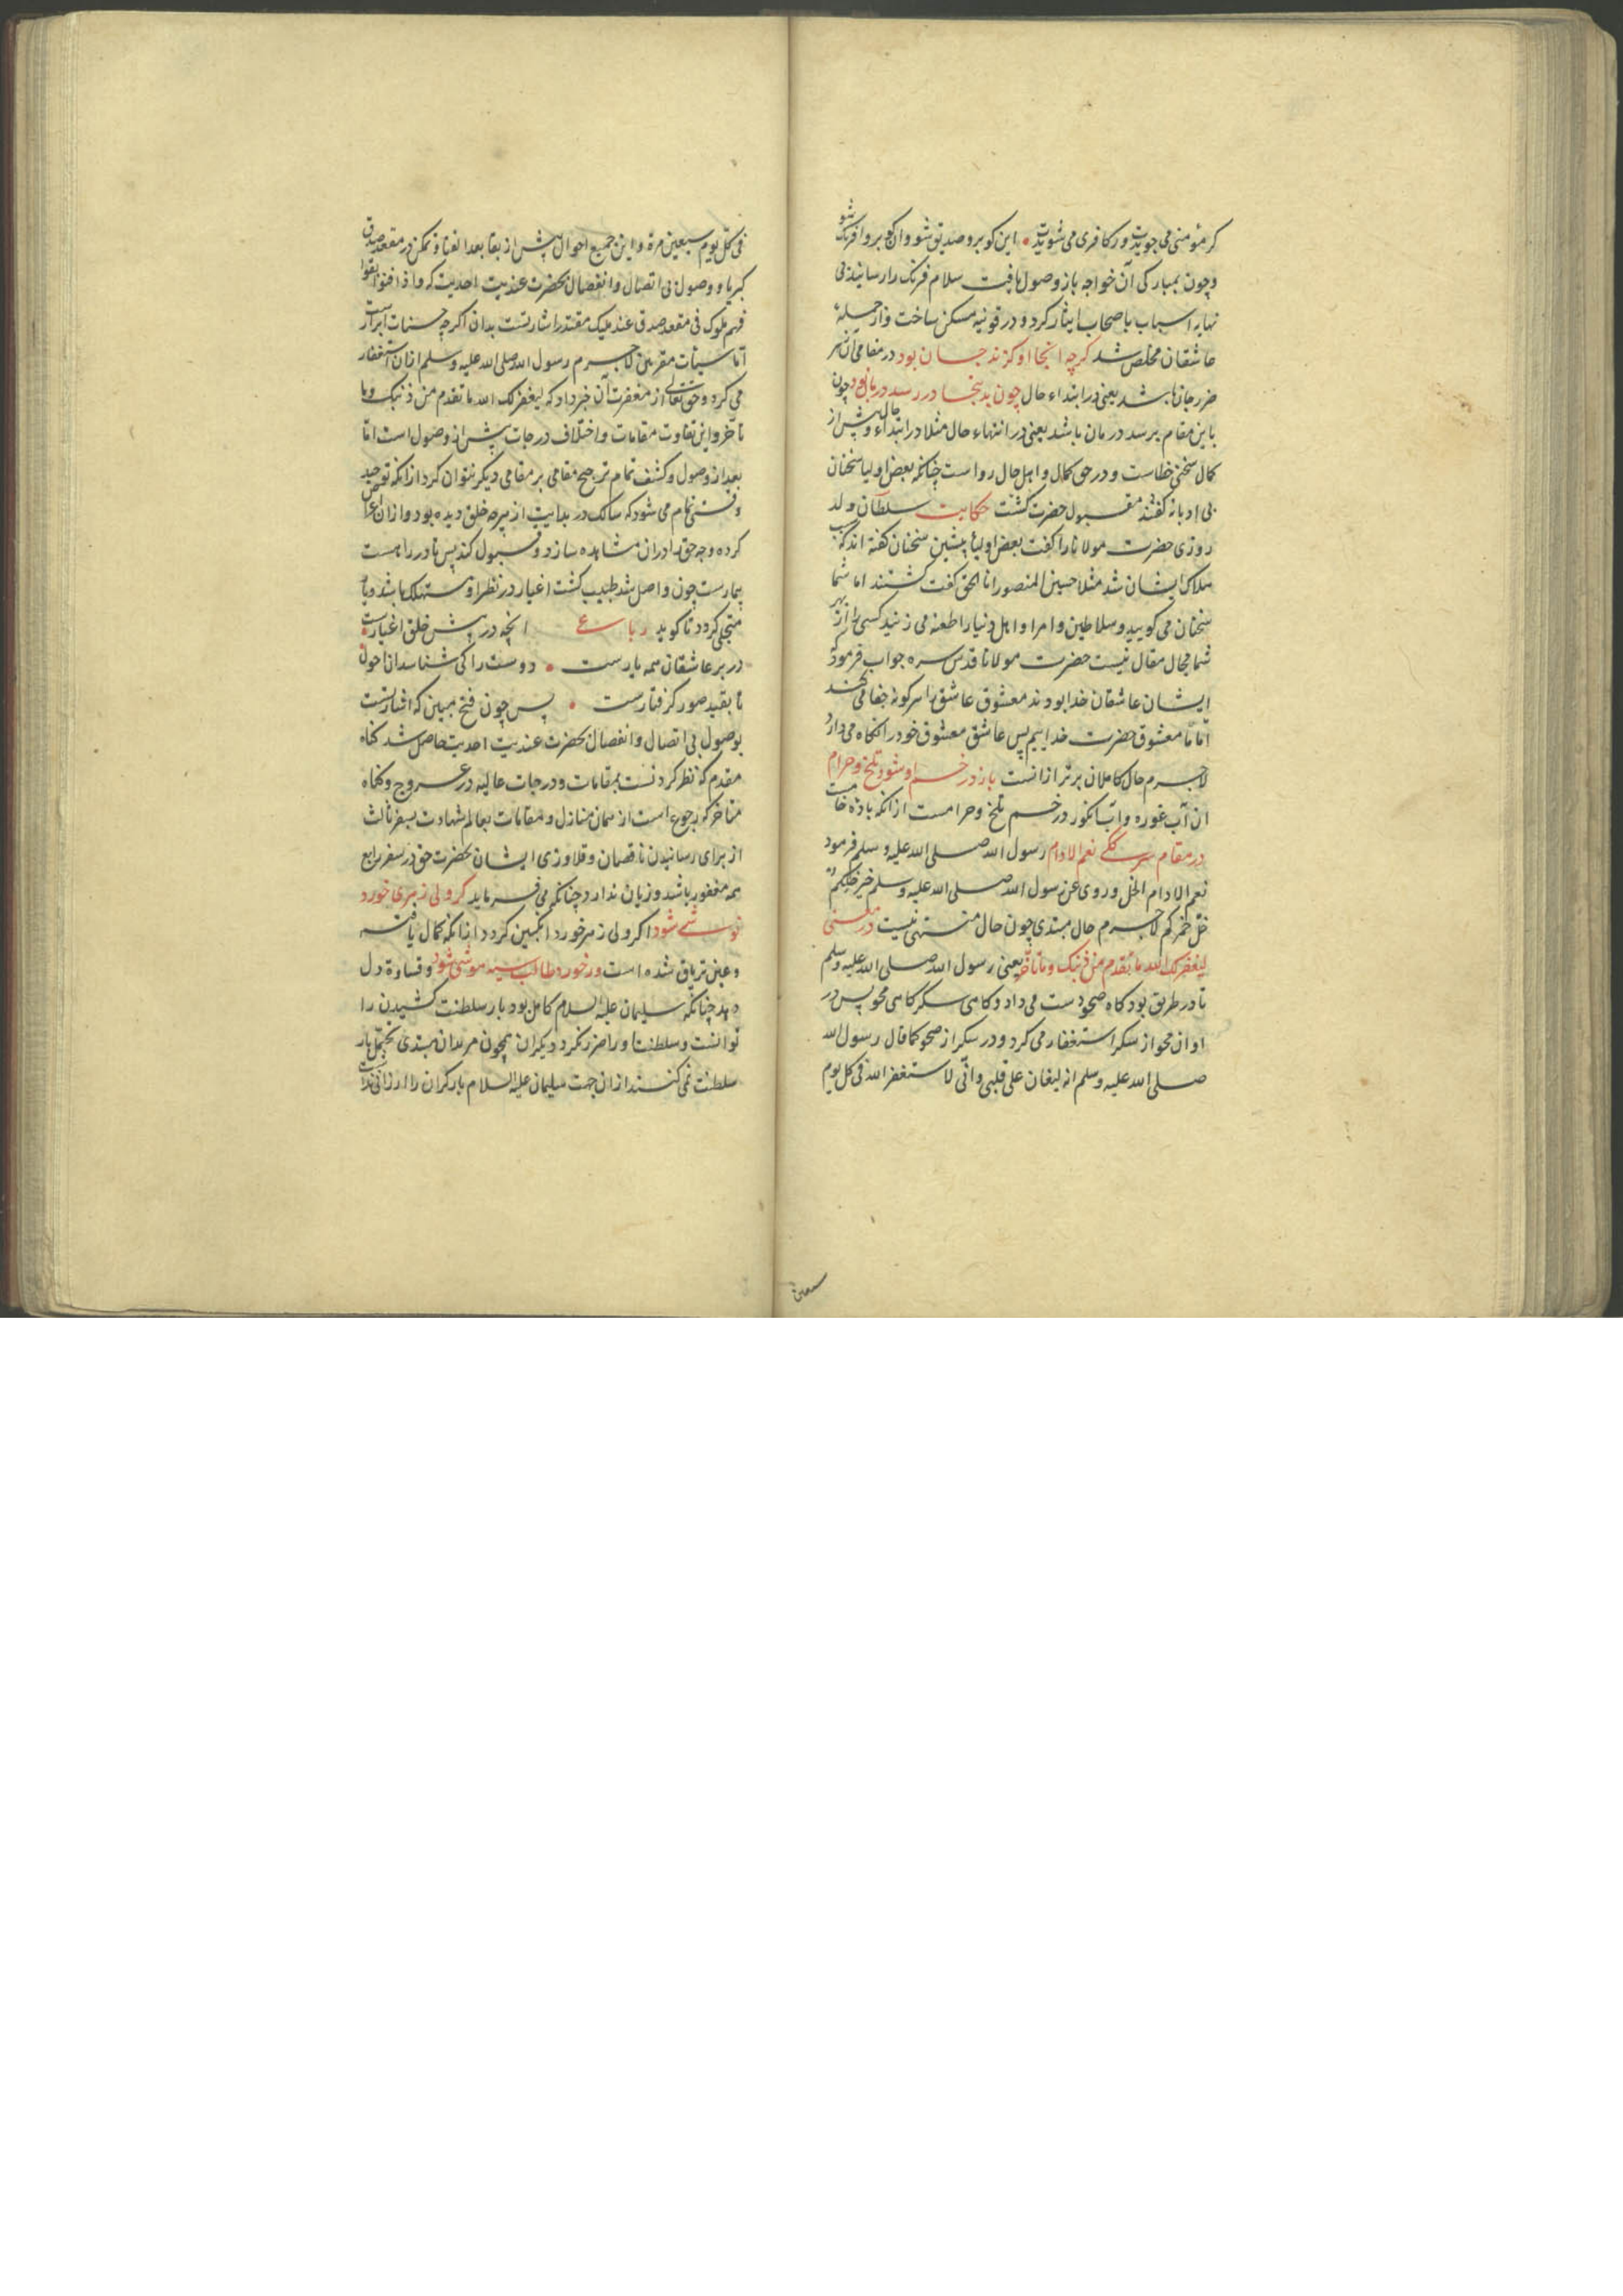 کر مؤمنی می جویدت ور کافری می شویدت این کو برو صدیق شو وان کو برو افرنک شو
و چون بمبارکی آن خواجه باز وصول یافت سلام فرنک را رسانید بی
نهایه اسباب باصحاب ایثار کرد و در قونیه مسکن ساخت و از جمله
عاشقان مخلص شد کرچه اینجا او کزند جان بود در مقامی آن سر
ضرر جان باشد یعنی در ابتداء حال چون بدینجا در رسد درمان بود چون
باین مقام برسد درمان باشد یعنی در انتهاء حال مثلا در ابتداء حال و پیش از
کمال سخنی خطاست و در حق کمال و اهل حال رواست چنانکه بعض اولیا سخنان
بی ادبانه کفتند مقبول حضرت کشت حکایت سلطان ولد
روزی حضرت مولانا را کفت بعض اولیاء پیشین سخنان کفته اند که سبب
هلاک ایشان شد مثلا حسین المنصور انا الحق کفت کشتند اما شما
سخنان می کویید و سلاطین و امرا و اهل دنیا را طعنه می زنید کسی را از بهر
شما مجال مقال نیست حضرت مولانا قدس سره جواب فرمود که
ایشان عاشقان خدا بودند معشوق عاشق را هرکونه جفا می کند
اما ما معشوق حضرت خداییم پس عاشق معشوق خود را نکاه می دارد
لاجرم حال کاملان برتر ازانست باز در خم او شود تلخ و حرام
ان آب غوره و آب انکور در خم تلخ و حرامست ازانکه باده خامست
در مقام سرککی نعم الادام رسول الله صلی الله علیه و سلم فرمود
نعم الادام الخل و روی عن رسول الله صلی الله علیه و سلم خیر خلکم
خل خمرکم لاجرم حال مبتدی چون حال منتهی نیست در معنی
لیغفر لک الله ما تقدم من ذنبک و ما تأخر یعنی رسول الله صلی الله علیه و سلم
تا در طریق بود کاه صحو دست می داد و کاهی سکر کاهی محو پس در
اوان محو از سکر استغفار می کرد و در سکر از صحو کما قال رسول الله
صلی الله علیه و سلم انه لیغان علی قلبی و انی لاستغفر الله فی کل یوم
سبعین
فی کل یوم سبعین مرة و این جمیع احوال پیش از بقا بعد الفنا و تمکن در مقعد صدق
کبریا و وصول بی اتصال و انفصال بحضرت عندیت احدیت که و اذا فنوا بقوا
فهم ملوک فی مقعد صدق عند ملیک مقتدر اشارتست بدان اکرچه حسنات ابرار ست
اما سیئات مقربین لاجرم رسول الله صلی الله علیه و سلم ازان استغفار
می کرد و حق تعالی از مغفرت آن خبر داد که لیغفر لک الله ما تقدم من ذنبک و ما
تأخر و این تفاوت مقامات و اختلاف درجات پیش از وصول است اما
بعد از وصول و کشف تمام ترجیح مقامی بر مقامی دیکر نتوان کرد ازانکه توحید
وقتی تمام می شود که سالک در بدایت از هرچه خلق دیده بود و ازان اعراض
کرده وجه حق را در ان مشاهده سازد و قبول کند پس تا در راهست
بیمارست چون واصل شد طبیب کشت اغیار در نظر او مستهلک باشد و یار
متجلی کردد تا کوید رباعی انچه در پیش خلق اغیارست
در بر عاشقان همه یارست دوست را کی شناسد ان احول
تا بقید صور کرفتارست پس چون فتح مبین که اشارتست
بوصول بی اتصال و انفصال بحضرت عندیت احدیت حاصل شد کناه
مقدم که نظر کردنست بمقامات و درجات عالیه در عروج و کناه
متأخر که رجوع است از همان منازل و مقامات بعالم شهادت بسفر ثالث
از برای رسانیدن ناقصان و قلاوزی ایشان بحضرت حق در سفر رابع
همه مغفور باشد و زیان ندارد چنانکه می فرماید کر ولی زهری خورد
نوشی شود اکر ولی زهر خورد انکبین کردد ازانکه کمال یافته
و عین تریاق شده است ور خورد طالب سیه هوشی شود و قساوة دل
دهد چنانکه سلیمان علیه السلام کامل بود بار سلطنت کشیدن را
توانست و سلطنت او را ضرر نکرد دیکران همچون مریدان مبتدی تحمل بار
سلطنت نمی کنند ازان جهت سلیمان علیه السلام بار کران را ارزانی نداشت